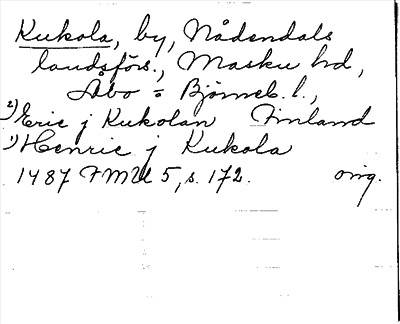 Kukola, by, Nådendals
landsförs., Masku hd,
Åbo = Björneb. l.,
2) Eric j Kukolan Finland
1) Henric j Kukola
1487 FMU 5, s. 172. orig.